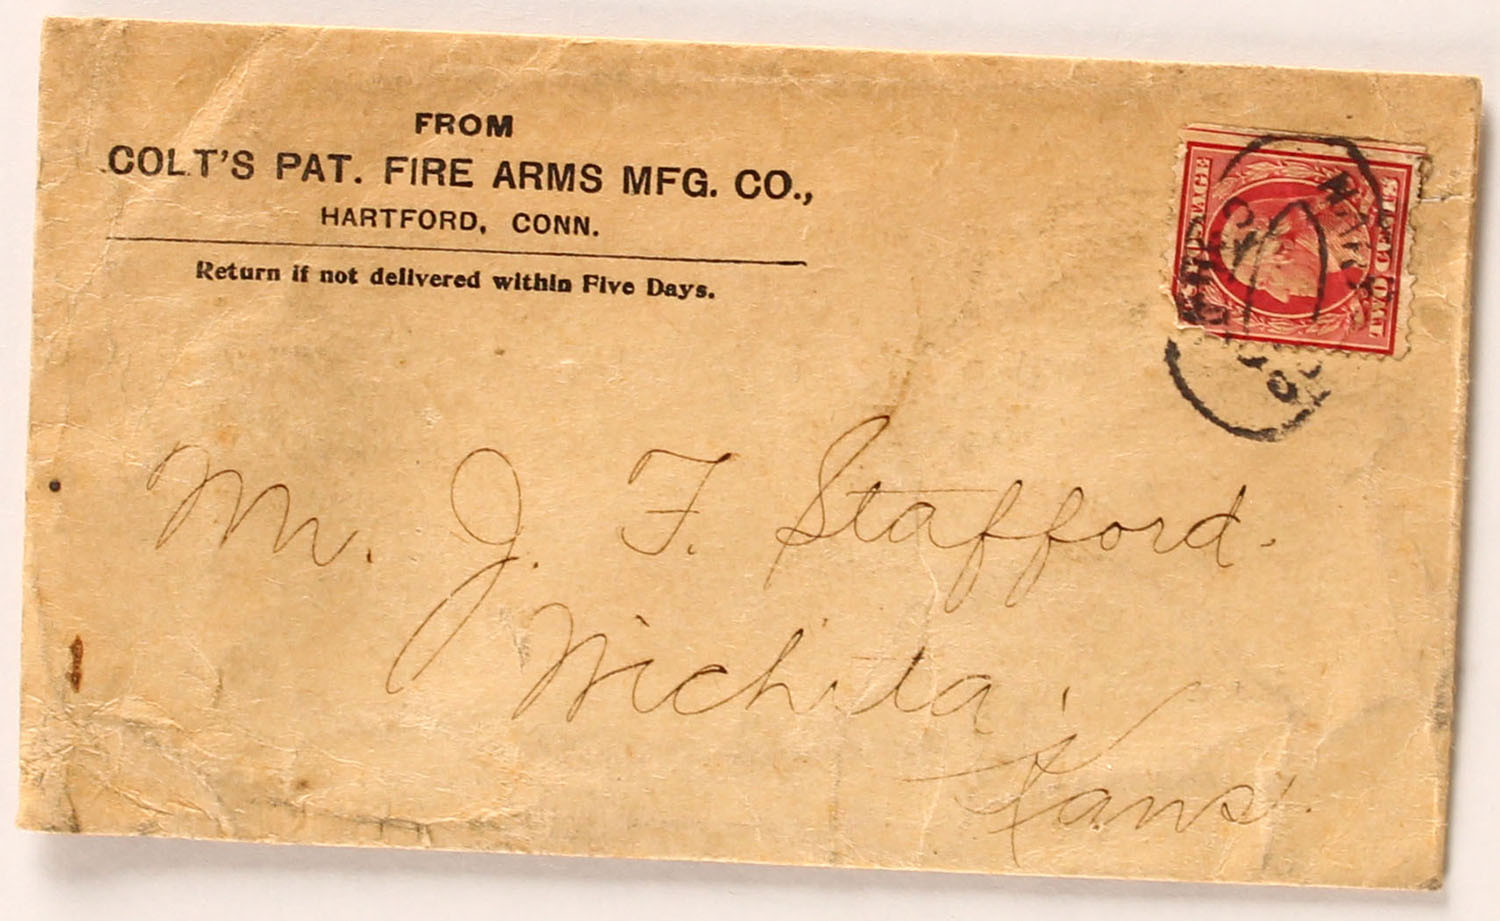 FROM
COLT'S PAT. FIRE ARMS MFG. CO.,
HARTFORD, CONN.
Return if not delivered within Five Days.
TWO CENTS
Mr. J. F. Stafford.
Wichita,
Kans.